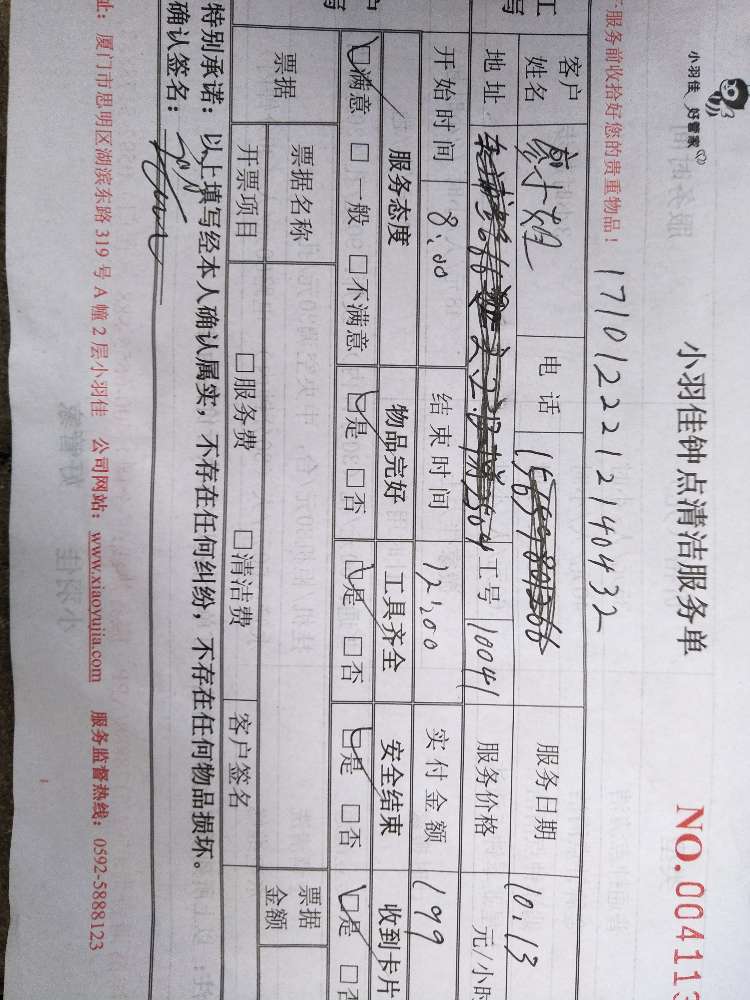 小羽佳 好管家
小羽佳钟点清洁服务单
NO.004113
服务前收拾好您的贵重物品！
1710122212140432
客户姓名 电话 服务日期 10.13
地址 工号 10041 服务价格 元/小时
开始时间 8:00 结束时间 12:00 实付金额 199
服务态度 物品完好 工具齐全 安全结束 收到卡片
☑满意 □一般 □不满意 ☑是 □否 ☑是 □否 ☑是 □否 ☑是 □否
票据 票据名称 票据金额
开票项目 □服务费 □清洁费 客户签名
特别承诺：以上填写经本人确认属实，不存在任何纠纷，不存在任何物品损坏。
确认签名：
址：厦门市思明区湖滨东路 319 号 A 幢 2 层小羽佳 公司网站：www.xiaoyujia.com 服务监督热线：0592-5888123